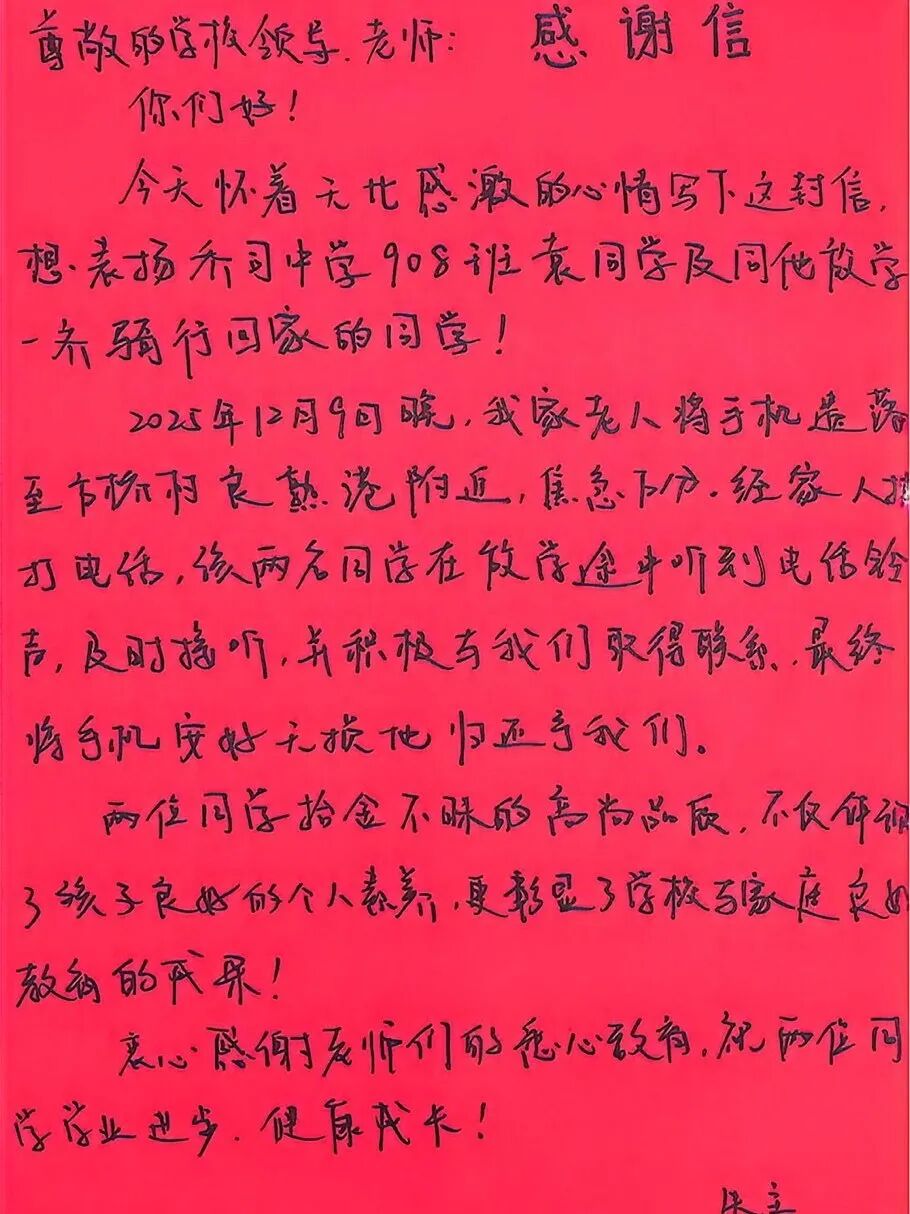 感谢信
尊敬的学校领导、老师：
你们好！
今天怀着无比感激的心情写下这封信，
想表扬乔司中学908班袁同学及同他放学
一齐骑行回家的同学！
2025年12月9日晚，我家老人将手机遗落
至方桥村良熟港附近，焦急万分。经家人拨
打电话，该两名同学在放学途中听到电话铃
声，及时接听，并积极与我们取得联系，最终
将手机完好无损地归还于我们。
两位同学拾金不昧的高尚品质，不仅体现
了孩子良好的个人素养，更彰显了学校与家庭良好
教育的成果！
衷心感谢老师们的悉心教育，祝两位同
学学业进步、健康成长！